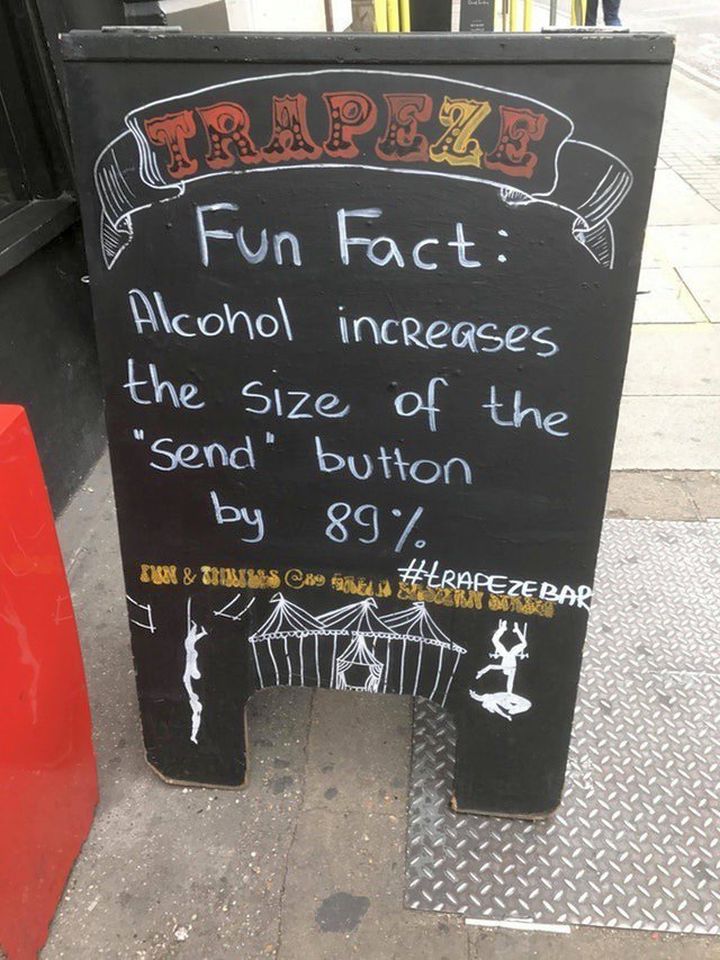 TRAPEZE
Fun Fact:
Alcohol increases
the size of the
"send" button
by 89%
#tRAPEZEBAR
FUN & THRILLS @89 GREAT EASTERN STREET